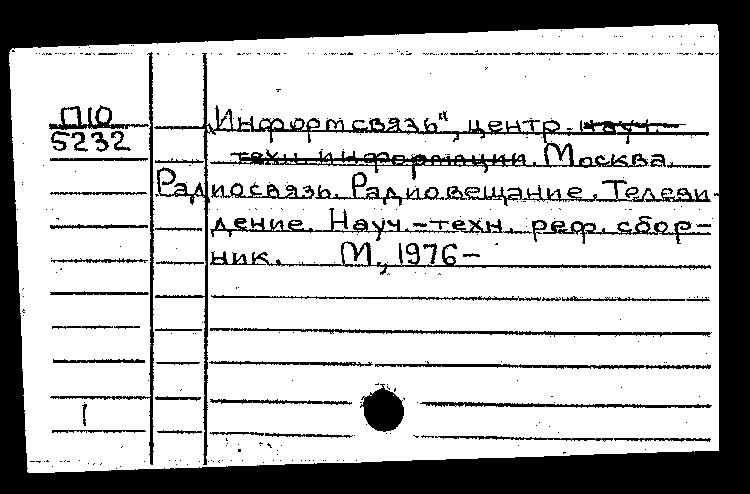 П10
5232
„Информсвязь", центр. науч.-
техн. информации. Москва.
Радиосвязь. Радиовещание. Телеви-
дение. Науч.-техн. реф. сбор-
ник. М., 1976-
1